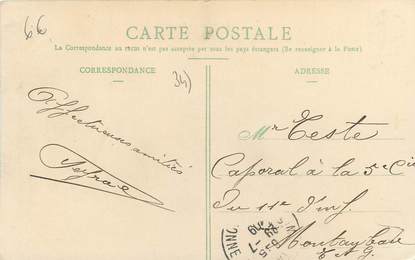 66
CARTE POSTALE
La Correspondance au recto n'est pas acceptée par tous les pays étrangers (Se renseigner à la Poste)
CORRESPONDANCE
ADRESSE
34)
Affectueuses amitiés
Mr Teste
Caporal à la 5e Cie
du 11e d'Inf.
Montauban
T & G.